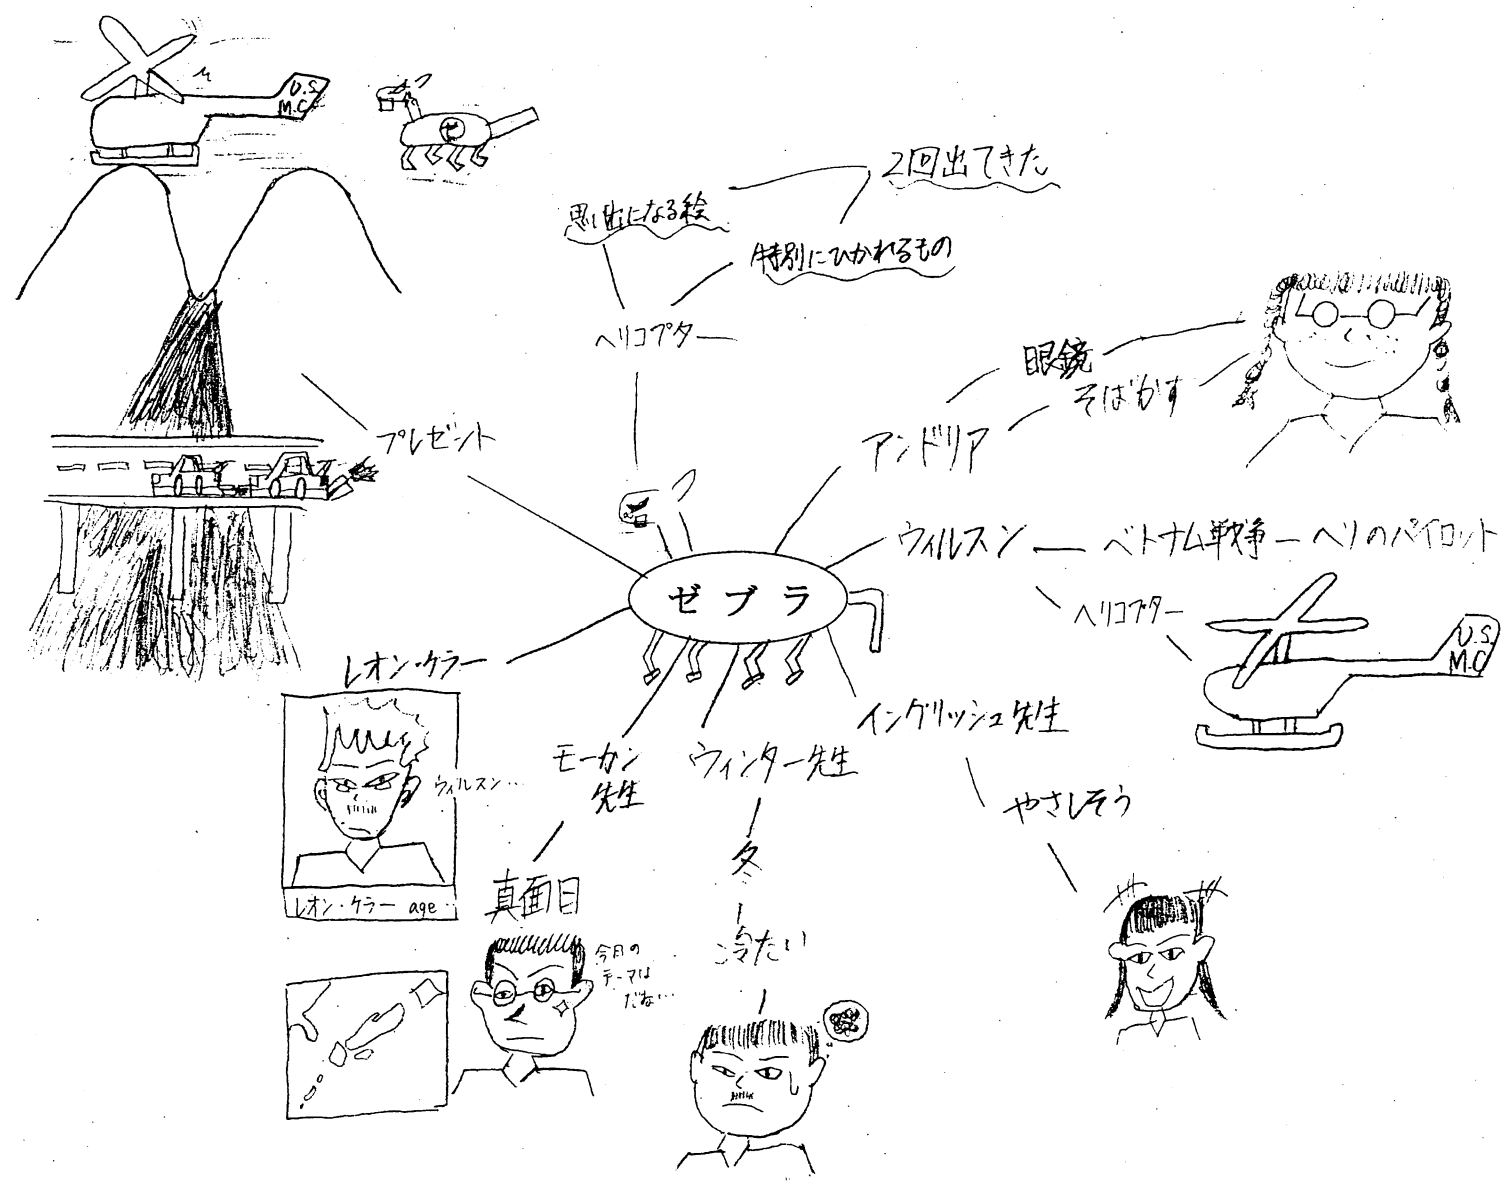 U.S.
M.C.
ゼ
2回出てきた
思い出になる絵
特別にひかれるもの
ヘリコプター
眼鏡
そばかす
アンドリア
プレゼント
ウィルスン
ベトナム戦争
ヘリのパイロット
ヘリコプター
U.S.
M.C
ゼブラ
レオン・ケラー
ウィルスン…
レオン・ケラー age..
モーガン
先生
真面目
今日の
テーマは
だね…
ウィンター先生
冬
冷たい
イングリッシュ先生
やさしそう